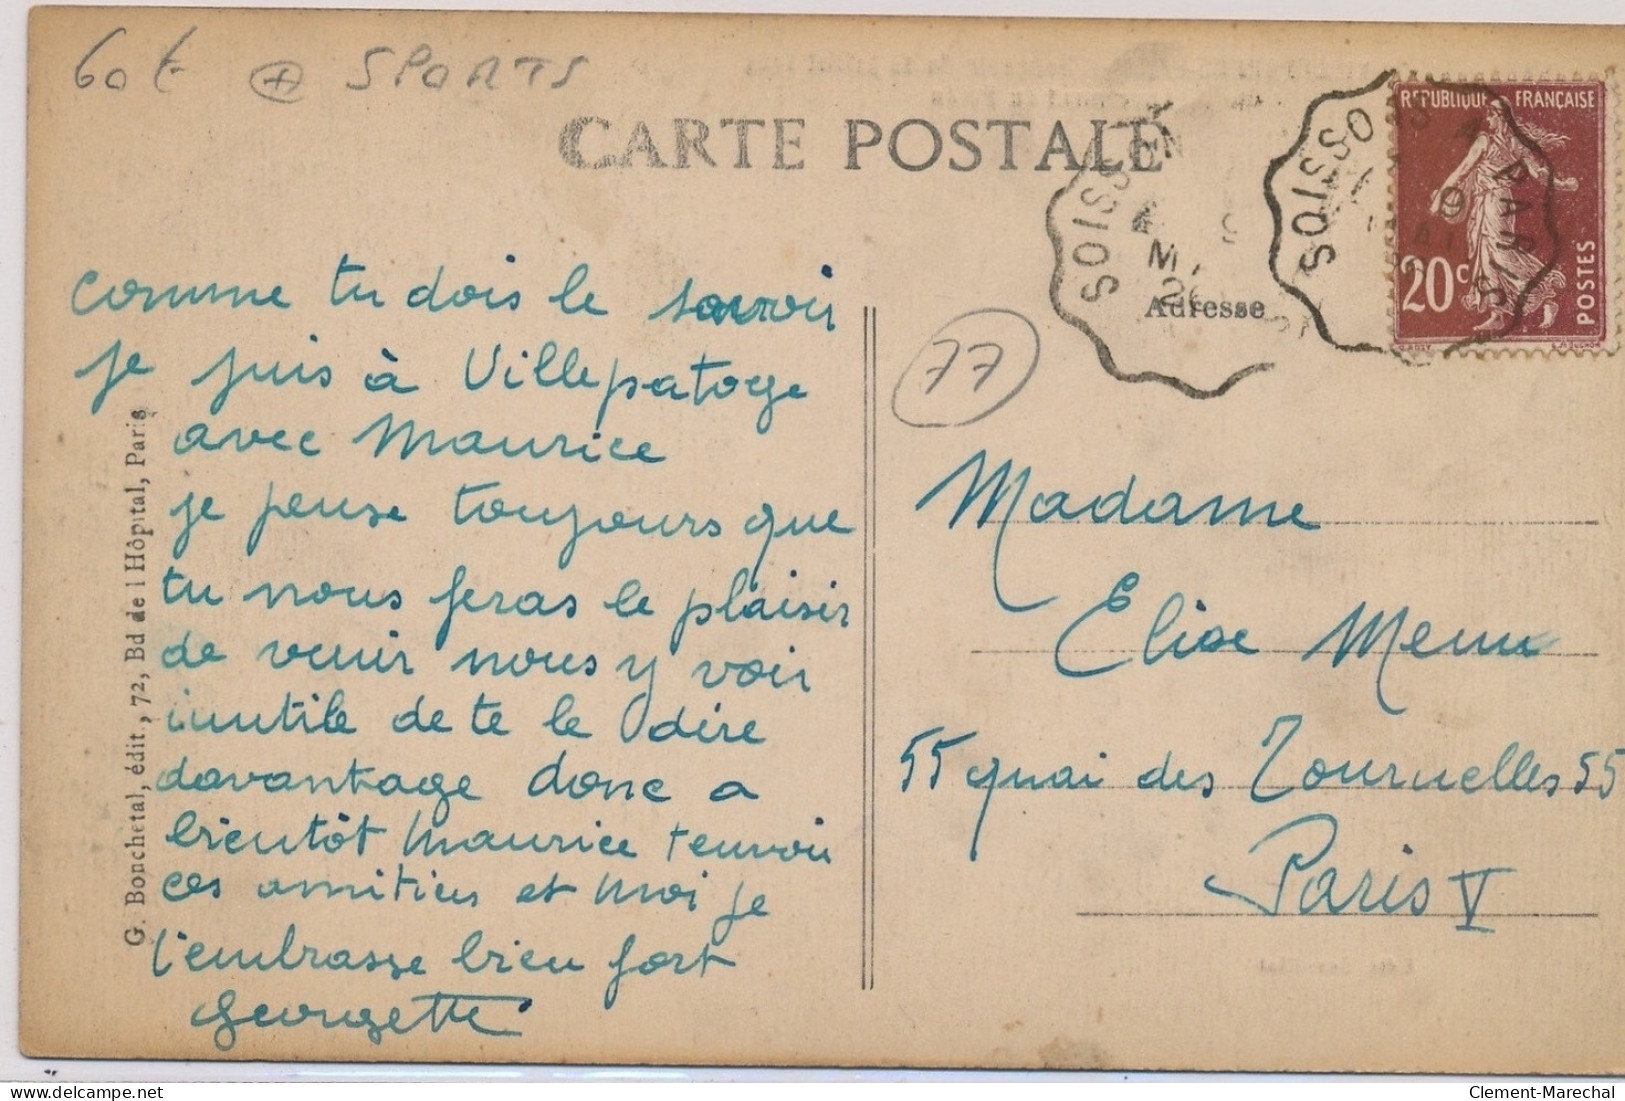 60€ + SPORTS
CARTE POSTALE
RÉPUBLIQUE FRANÇAISE
20c
POSTES
SOISSONS
SOISSONS A PARIS
Adresse
77
comme tu dois le savoir
je suis à Villepatoge
avec Maurice
je pense toujours que
tu nous feras le plaisir
de venir nous y voir
inutile de te le dire
davantage donc a
bientôt Maurice t'envoi
ces amitiées et moi je
t'embrasse bien fort
Georgette
G. Bonchetal, édit, 72, Bd de l Hôpital, Paris
Madame
Elise Menu
55 quai des Tournelles 55
Paris V
Clement-Marechal